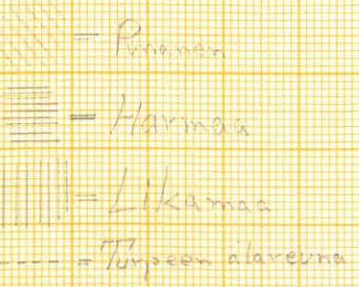 = Punanen
= Harmaa
= Likamaa
= Turpeen alareuna